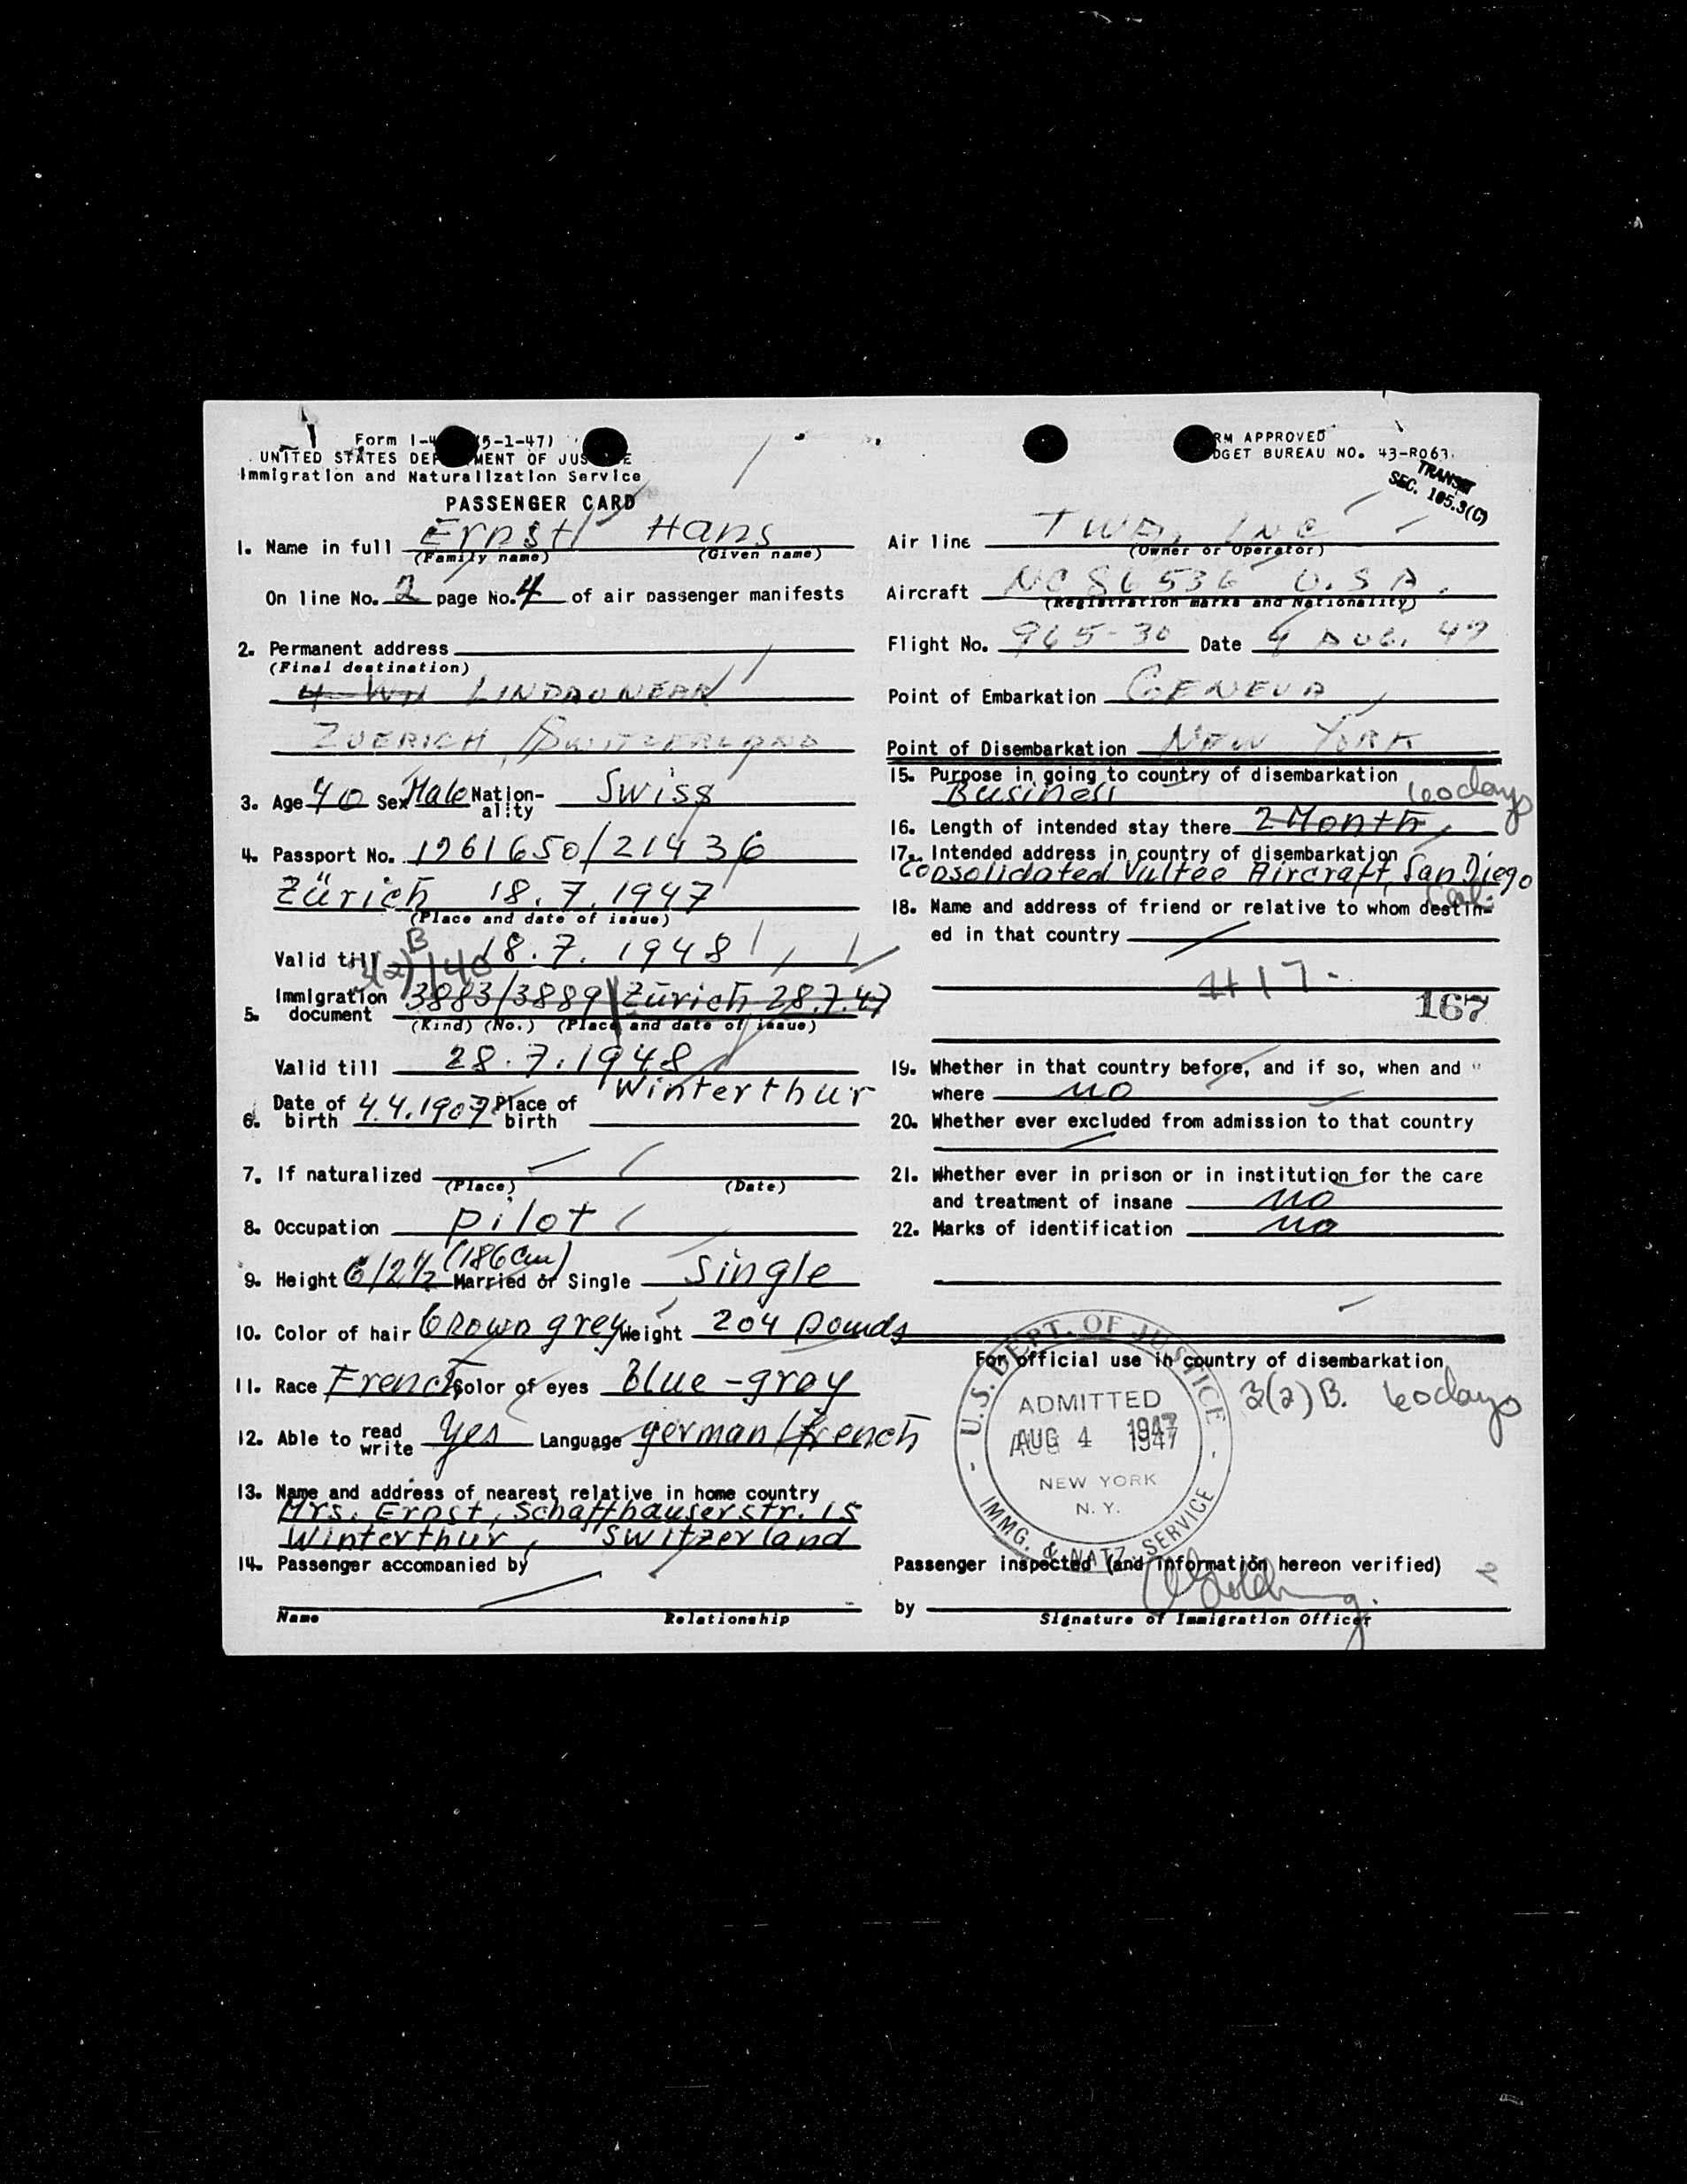 Form I-4 (5-1-47)
UNITED STATES DEP MENT OF JUS E
Immigration and Naturalization Service
PASSENGER CARD
1. Name in full Ernst Hans
(Family name) (Given name)
On line No. 2 page No. 4 of air passenger manifests
2. Permanent address
(Final destination)
LINDAU NEAR
ZUERICH, SWITZERLAND
3. Age 40 Sex Male Nation-ality Swiss
4. Passport No. 1961650/21436
Zürich 18.7.1947
(Place and date of issue)
B
Valid till 18.7.1948
3(2) 140
5. Immigration document 3883/3889 Zürich 28.7.47
(Kind) (No.) (Place and date of issue)
Valid till 28.7.1948
6. Date of birth 4.4.1907 Place of birth Winterthur
7. If naturalized
(Place) (Date)
8. Occupation pilot
9. Height 6/2½ (186 cm) Married or Single Single
10. Color of hair brown grey Weight 204 pounds
11. Race French Color of eyes Blue-gray
12. Able to read write yes Language german/french
13. Name and address of nearest relative in home country
Mrs. Ernst, Schaffhauserstr. 15
Winterthur, Switzerland
14. Passenger accompanied by
Name Relationship
RM APPROVED
DGET BUREAU NO. 43-R063.
TRANSIT
SEC. 105.3(C)
Air line TWA, INC
(Owner or Operator)
Aircraft NC 86536 U.S.A.
(Registration marks and Nationality)
Flight No. 965-30 Date 4 AUG. 47
Point of Embarkation GENEVA
Point of Disembarkation NEW YORK
15. Purpose in going to country of disembarkation
Business 60 days
16. Length of intended stay there 2 Month
17. Intended address in country of disembarkation
Consolidated Vultee Aircraft, San Diego
Cal.
18. Name and address of friend or relative to whom destin-
ed in that country
417.
167
19. Whether in that country before, and if so, when and
where no
20. Whether ever excluded from admission to that country
21. Whether ever in prison or in institution for the care
and treatment of insane no
22. Marks of identification no
For official use in country of disembarkation
3(2) B. 60 days
U.S. DEPT. OF JUSTICE
ADMITTED
AUG 4 1947
NEW YORK
N. Y.
IMMG. & NATZ. SERVICE
Passenger inspected (and information hereon verified) 2
by
Signature of Immigration Officer